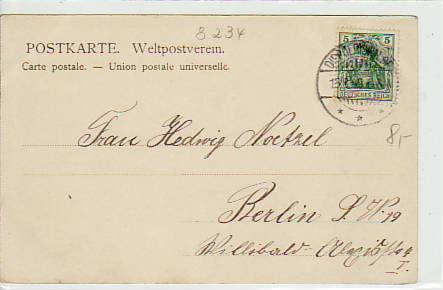 8234
POSTKARTE. Weltpostverein.
Carte postale. — Union postale universelle.
5 5
DEUTSCHES REICH
8,-
Frau Hedwig Noetzel
Berlin S. W. 19
Willibald-Alexisstr
I.